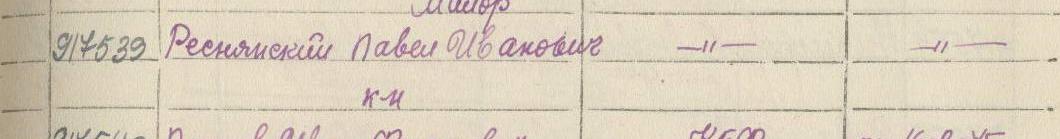 Майор
917539 Реснянский Павел Иванович —"— —"—
к-н